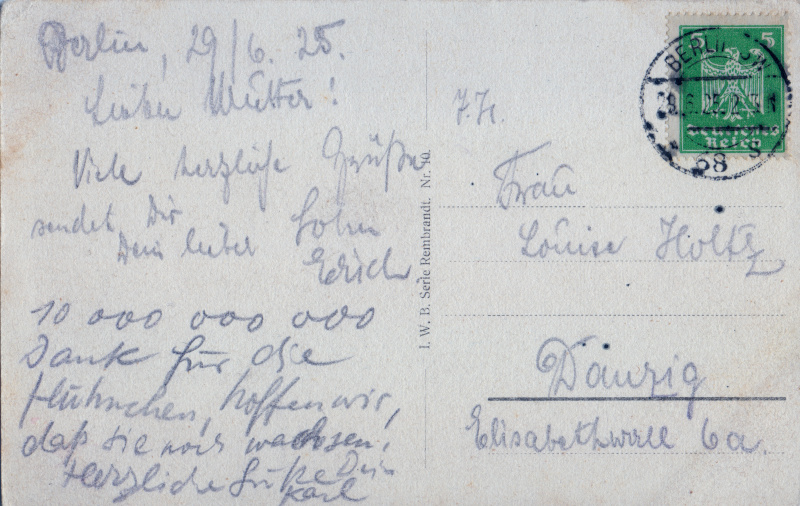 Berlin, 29/6. 25.
Lieber Mutter!
Viele herzliche Grüße
sendet Dir
Dein lieber Sohn
Erich
10 000 000 000
Dank für die
Hühnchen, hoffen wir,
daß sie noch wachsen.
Herzliche Grüße Dein
Karl
I. W. B. Serie Rembrandt. Nr. 10.
Frau
Louise Holtz
Danzig
Elisabethwall 6a.
5 5
Deutsches
Reich
BERLIN SW
29.6.25.
68